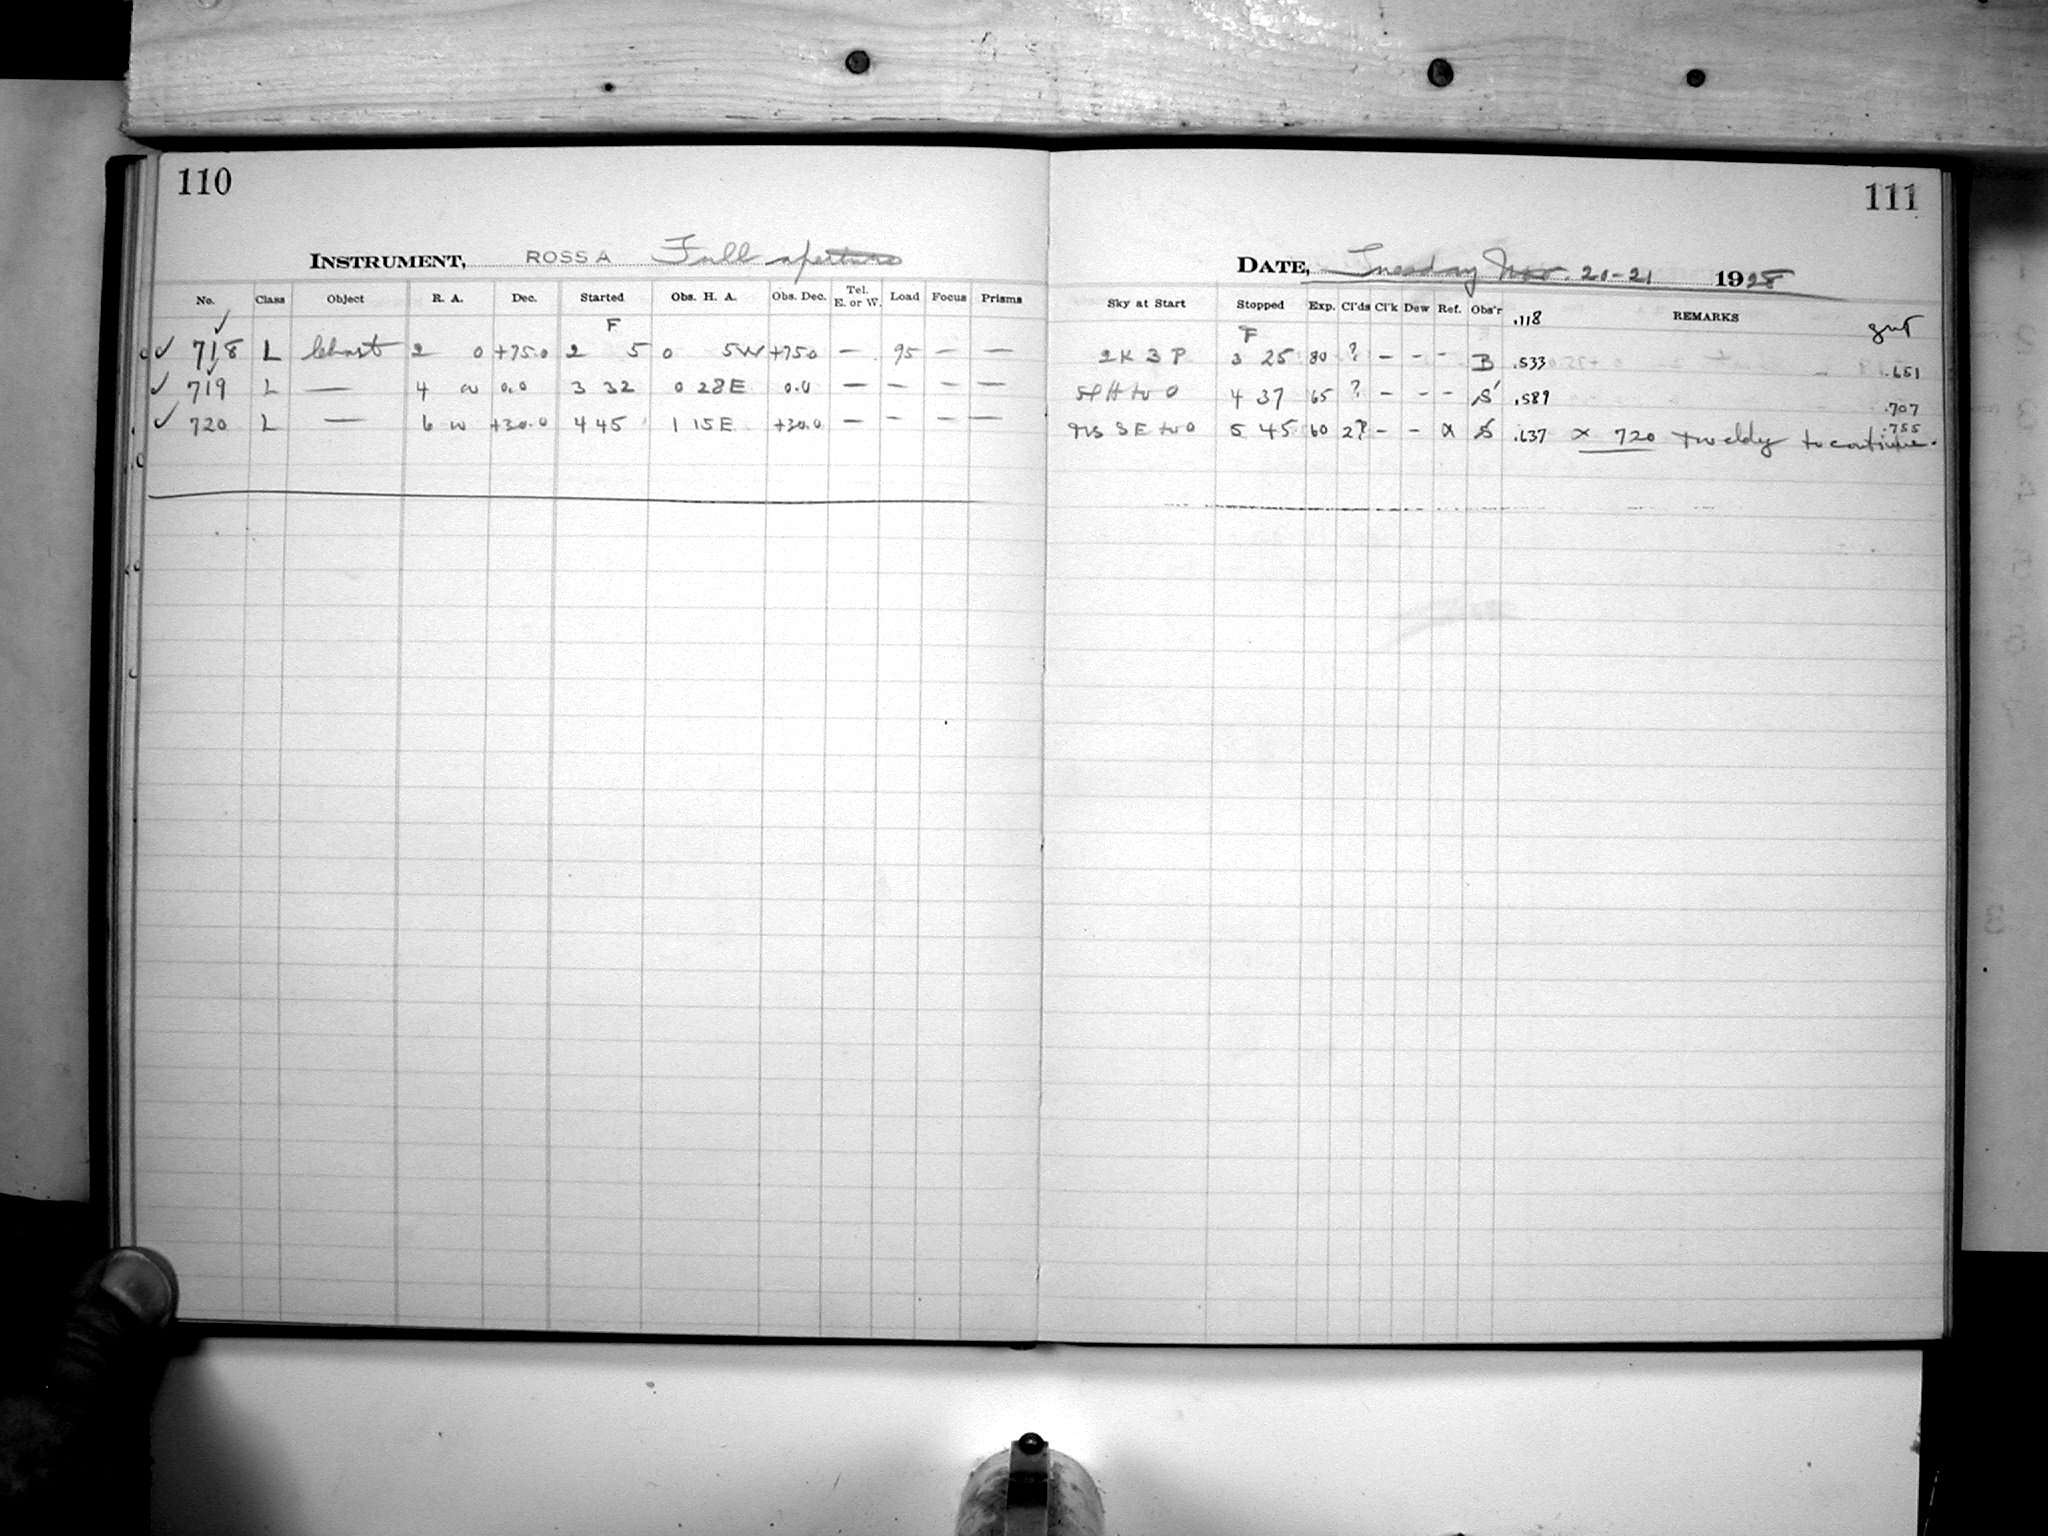 110
INSTRUMENT, ROSS A Full aperture
No. Class Object R. A. Dec. Started Obs. H. A. Obs. Dec. Tel. E. or W. Load Focus Prisms
F
✓ 718 L 2 0 +75.0 2 5 0 5W +75.0 — 95 — —
✓ 719 L — 4 0.0 3 32 0 28E 0.0 — — — —
✓ 720 L — 6 +30.0 4 45 1 15E +30.0 — — — —
111
DATE, Tuesday Nov. 20-21 1928
Sky at Start Stopped Exp. Cl'ds Cl'k Dew Ref. Obs'r .118 REMARKS gmt
F
2K 3P 3 25 80 ? - - - B .533 .651
to 0 4 37 65 ? - - - S .589 .707
3 E to 0 5 45 60 2? - - x S .637 x 720 to continue. .755